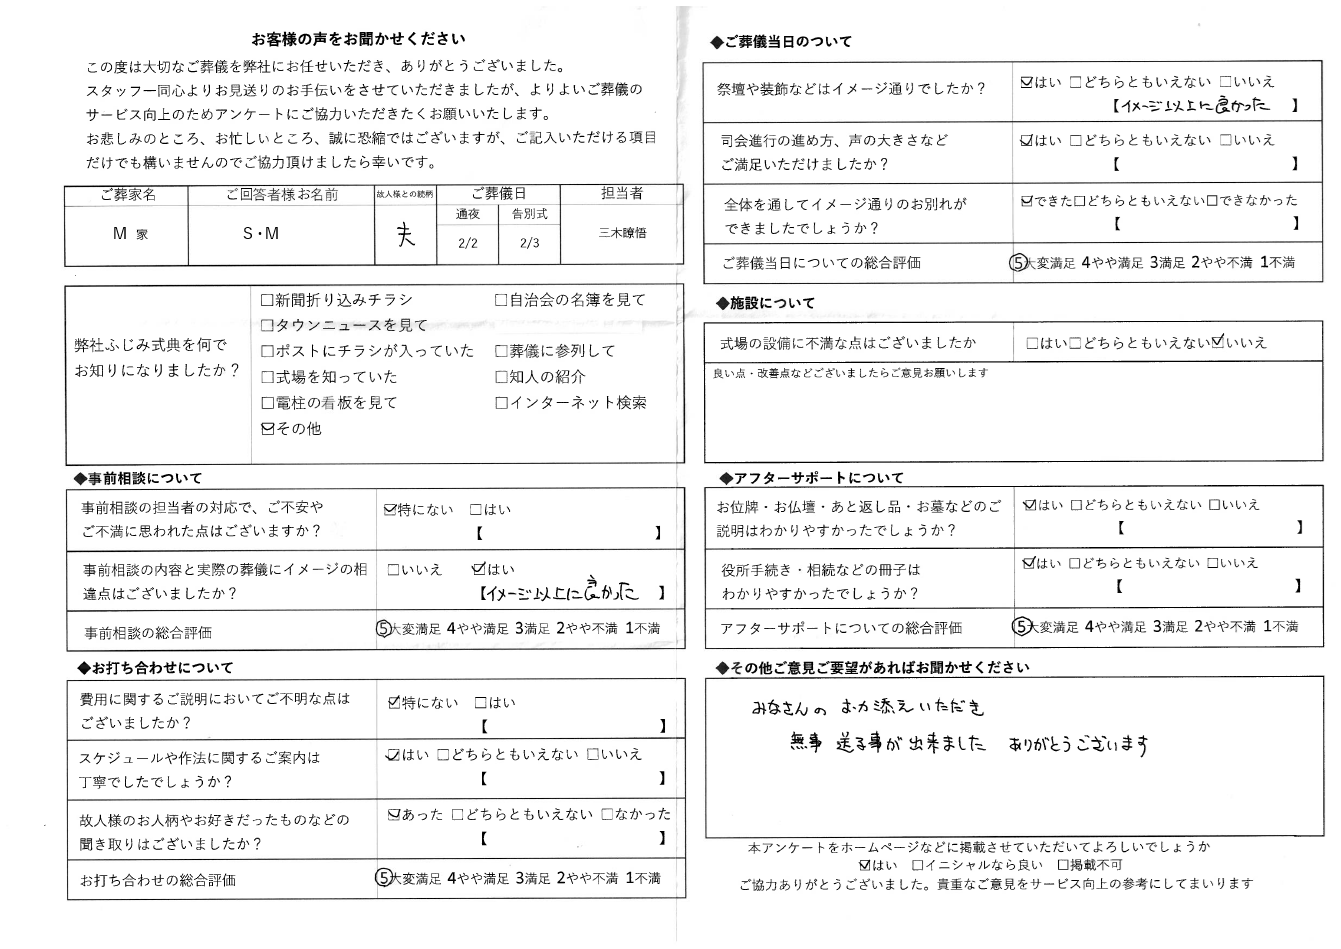 お客様の声をお聞かせください
この度は大切なご葬儀を弊社にお任せいただき、ありがとうございました。
スタッフ一同心よりお見送りのお手伝いをさせていただきましたが、よりよいご葬儀の
サービス向上のためアンケートにご協力いただきたくお願いいたします。
お悲しみのところ、お忙しいところ、誠に恐縮ではございますが、ご記入いただける項目
だけでも構いませんのでご協力頂けましたら幸いです。
ご葬家名 ご回答者様お名前 故人様との続柄 ご葬儀日 担当者
通夜 告別式
M 家 S・M 夫 2/2 2/3 三木瞭悟
弊社ふじみ式典を何で
お知りになりましたか？
□新聞折り込みチラシ □自治会の名簿を見て
□タウンニュースを見て
□ポストにチラシが入っていた □葬儀に参列して
□式場を知っていた □知人の紹介
□電柱の看板を見て □インターネット検索
☑その他
◆事前相談について
事前相談の担当者の対応で、ご不安や
ご不満に思われた点はございますか？
☑特にない □はい
【 】
事前相談の内容と実際の葬儀にイメージの相
違点はございましたか？
□いいえ ☑はい
【イメージ以上に良かった 】
事前相談の総合評価 ⑤大変満足 4やや満足 3満足 2やや不満 1不満
◆お打ち合わせについて
費用に関するご説明においてご不明な点は
ございましたか？
☑特にない □はい
【 】
スケジュールや作法に関するご案内は
丁寧でしたでしょうか？
☑はい □どちらともいえない □いいえ
【 】
故人様のお人柄やお好きだったものなどの
聞き取りはございましたか？
☑あった □どちらともいえない □なかった
【 】
お打ち合わせの総合評価 ⑤大変満足 4やや満足 3満足 2やや不満 1不満
◆ご葬儀当日のついて
祭壇や装飾などはイメージ通りでしたか？
☑はい □どちらともいえない □いいえ
【イメージ以上に良かった 】
司会進行の進め方、声の大きさなど
ご満足いただけましたか？
☑はい □どちらともいえない □いいえ
【 】
全体を通してイメージ通りのお別れが
できましたでしょうか？
☑できた□どちらともいえない□できなかった
【 】
ご葬儀当日についての総合評価 ⑤大変満足 4やや満足 3満足 2やや不満 1不満
◆施設について
式場の設備に不満な点はございましたか □はい□どちらともいえない☑いいえ
良い点・改善点などございましたらご意見お願いします
◆アフターサポートについて
お位牌・お仏壇・あと返し品・お墓などのご
説明はわかりやすかったでしょうか？
☑はい □どちらともいえない □いいえ
【 】
役所手続き・相続などの冊子は
わかりやすかったでしょうか？
☑はい □どちらともいえない □いいえ
【 】
アフターサポートについての総合評価 ⑤大変満足 4やや満足 3満足 2やや不満 1不満
◆その他ご意見ご要望があればお聞かせください
みなさんの お力添えいただき
無事 送る事が出来ました ありがとうございます
本アンケートをホームページなどに掲載させていただいてよろしいでしょうか
☑はい □イニシャルなら良い □掲載不可
ご協力ありがとうございました。貴重なご意見をサービス向上の参考にしてまいります